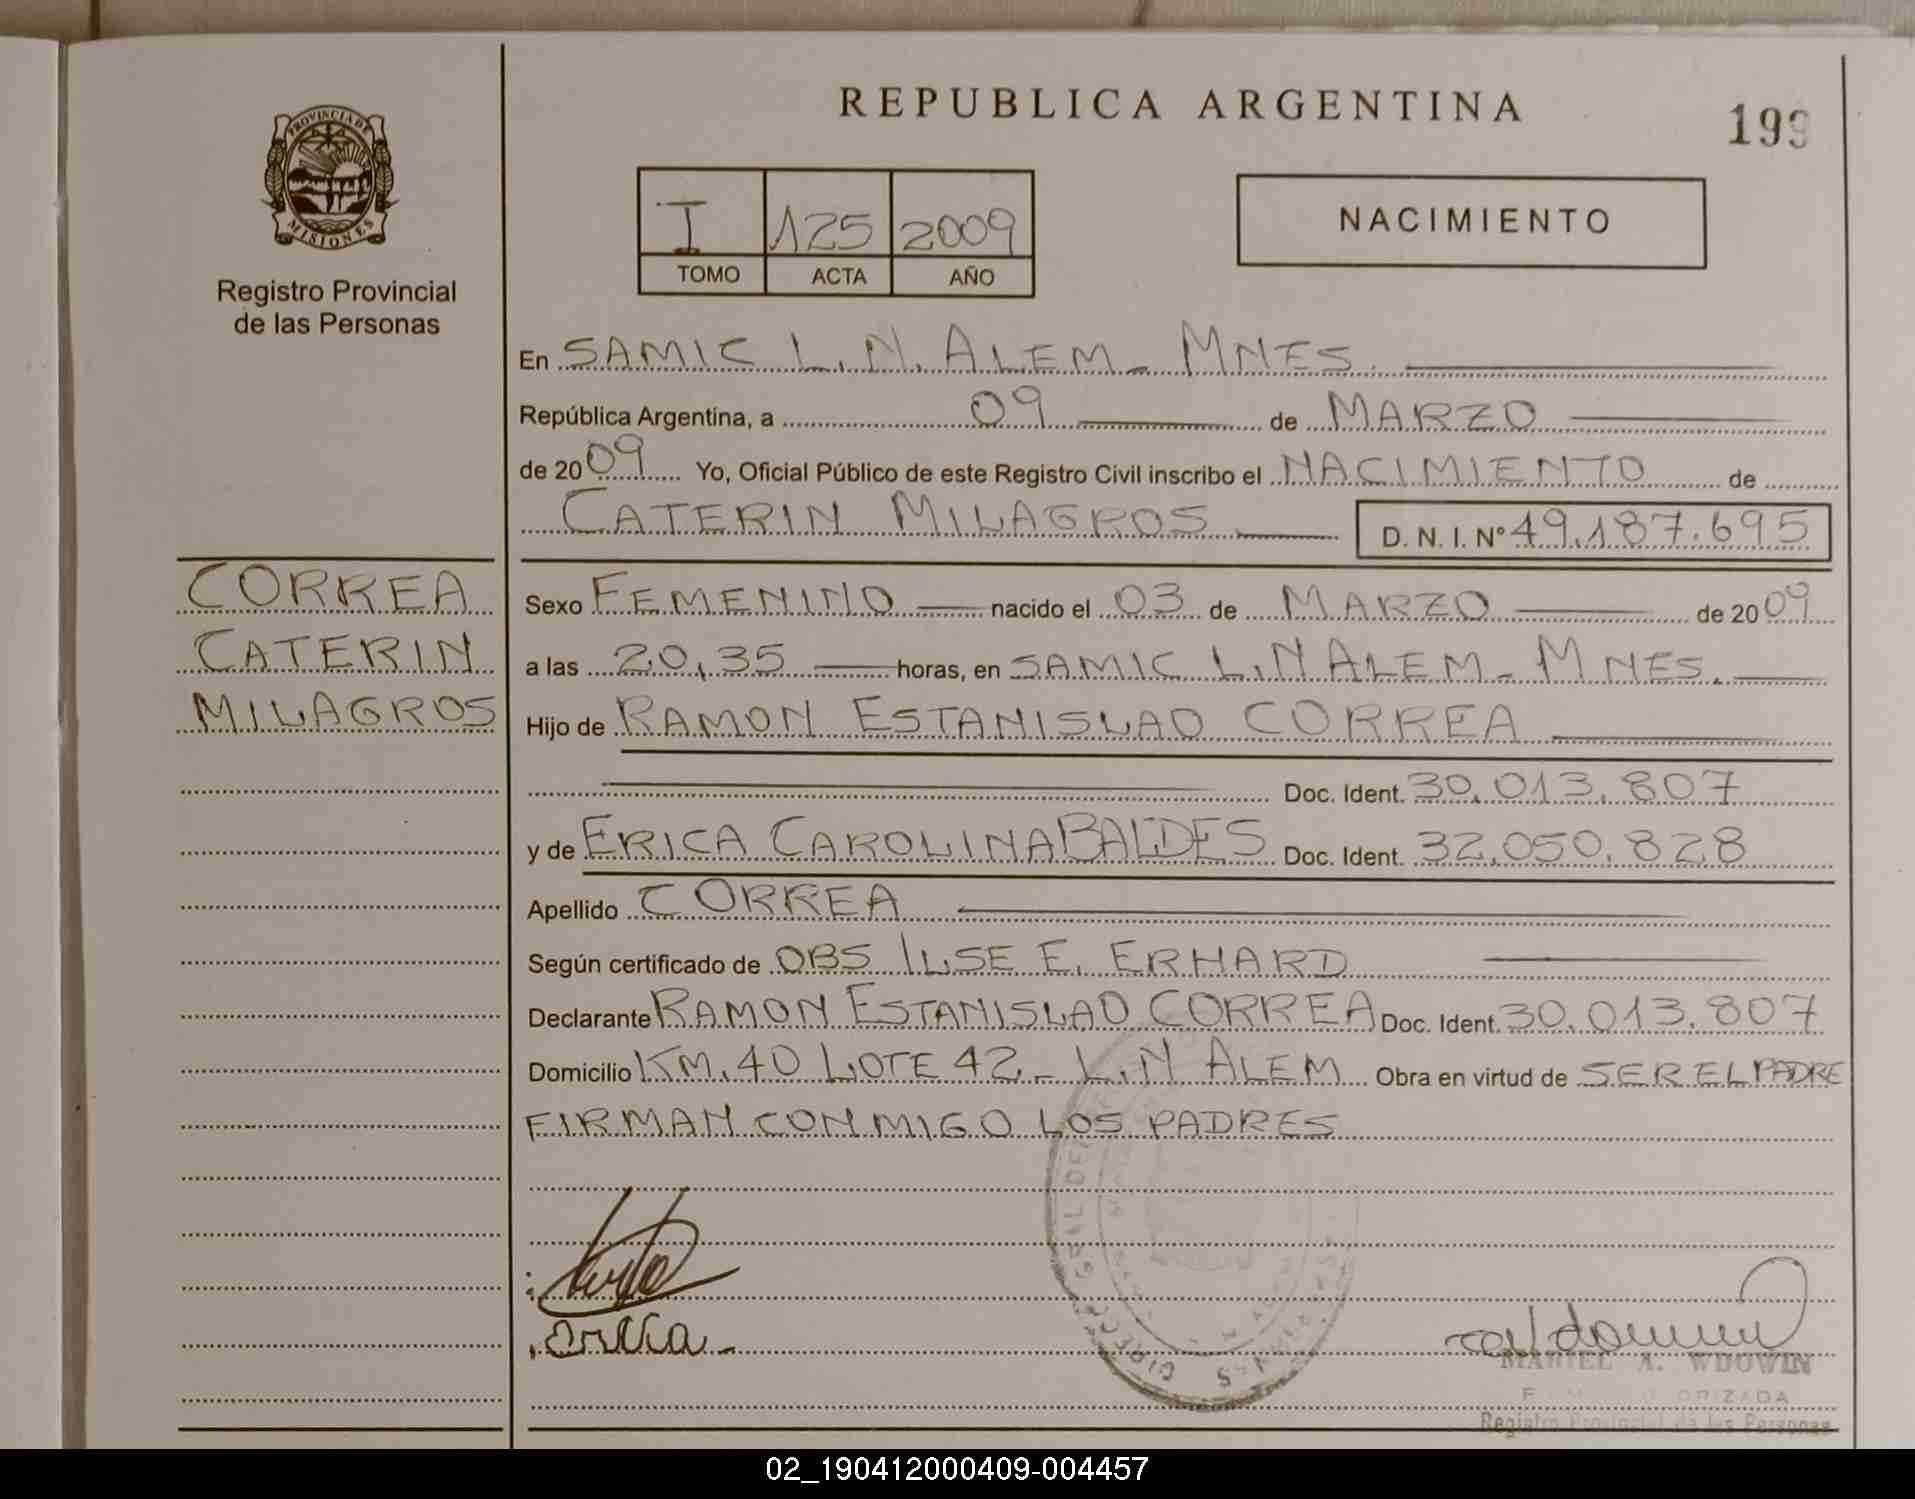 REPUBLICA ARGENTINA
199
PROVINCIA DE
MISIONES
Registro Provincial
de las Personas
I 125 2009
TOMO ACTA AÑO
NACIMIENTO
En SAMIC L.N. ALEM - MNES.
República Argentina, a 09 de MARZO
de 2009 Yo, Oficial Público de este Registro Civil inscribo el NACIMIENTO de
CATERIN MILAGROS D. N. I. Nº 49.187.695
CORREA
CATERIN
MILAGROS
Sexo FEMENINO nacido el 03 de MARZO de 2009
a las 20,35 horas, en SAMIC L.N ALEM - MNES.
Hijo de RAMON ESTANISLAO CORREA
Doc. Ident. 30.013.807
y de ERICA CAROLINA BALDES Doc. Ident. 32.050.828
Apellido CORREA
Según certificado de OBS ILSE E. ERHARD
Declarante RAMON ESTANISLAO CORREA Doc. Ident. 30.013.807
Domicilio KM. 40 LOTE 42 - L.N ALEM Obra en virtud de SER EL PADRE
FIRMAN CONMIGO LOS PADRES
MARIEL A. WDOWIN
Registro Provincial de las Personas
02_190412000409-004457